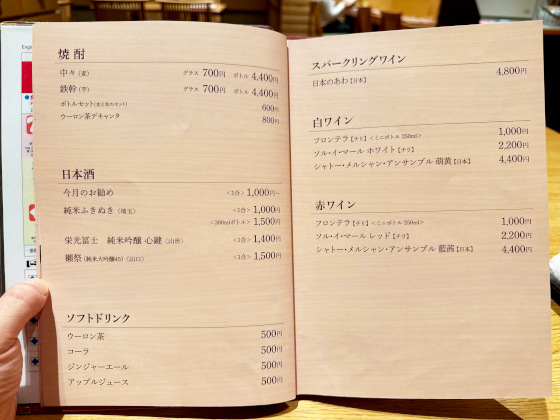 焼酎
中々(麦) グラス 700円 ボトル 4,400円
鉄幹(芋) グラス 700円 ボトル 4,400円
ボトルセット(水と氷のセット) 600円
ウーロン茶デキャンタ 800円
日本酒
今月のお勧め <1合> 1,000円〜
純米ふきぬき(埼玉) <1合> 1,000円
<300mlボトル> 1,500円
栄光冨士 純米吟醸 心鍵(山形) <1合> 1,400円
獺祭(純米大吟醸45)(山口) <1合> 1,500円
ソフトドリンク
ウーロン茶 500円
コーラ 500円
ジンジャーエール 500円
アップルジュース 500円
スパークリングワイン
日本のあわ【日本】 4,800円
白ワイン
フロンテラ【チリ】<ミニボトル 250ml> 1,000円
ソル・イ・マール ホワイト【チリ】 2,200円
シャトー・メルシャン・アンサンブル 萌黄【日本】 4,400円
赤ワイン
フロンテラ【チリ】<ミニボトル 250ml> 1,000円
ソル・イ・マール レッド【チリ】 2,200円
シャトー・メルシャン・アンサンブル 藍茜【日本】 4,400円